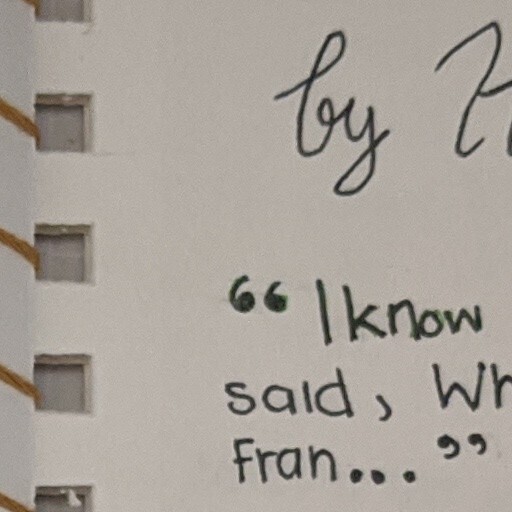 by
“I know
said, Wh
Fran...”